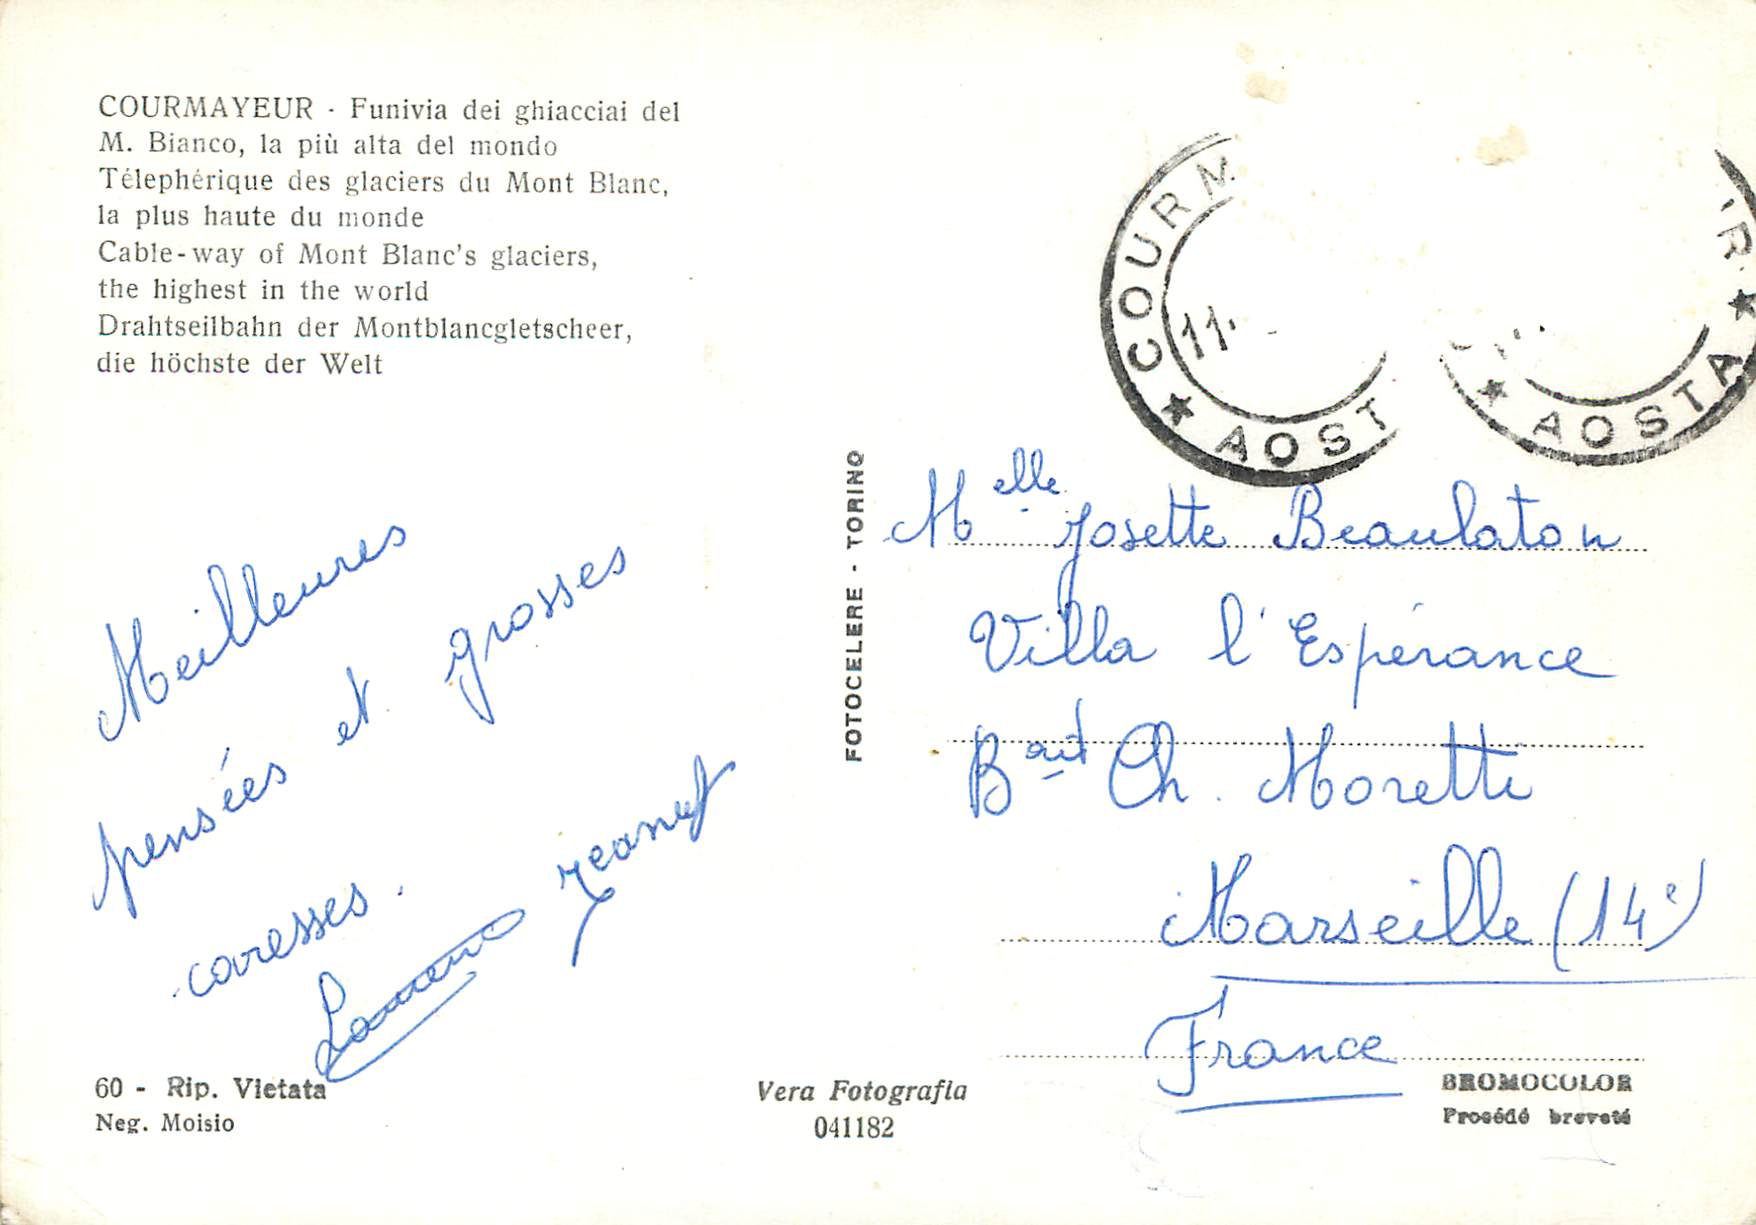 COURMAYEUR - Funivia dei ghiacciai del
M. Bianco, la più alta del mondo
Télephérique des glaciers du Mont Blanc,
la plus haute du monde
Cable-way of Mont Blanc's glaciers,
the highest in the world
Drahtseilbahn der Montblancgletscheer,
die höchste der Welt
COURM
AOST
11.
R.
AOSTA
Meilleures
pensées et grosses
caresses.
FOTOCELERE - TORINO
Melle Josette Beaulaton
Villa l'Espérance
Bard Ch. Moretti
Marseille (14e)
France
60 - Rip. Vietata
Neg. Moisio
Vera Fotografia
041182
BROMOCOLOR
Procédé breveté